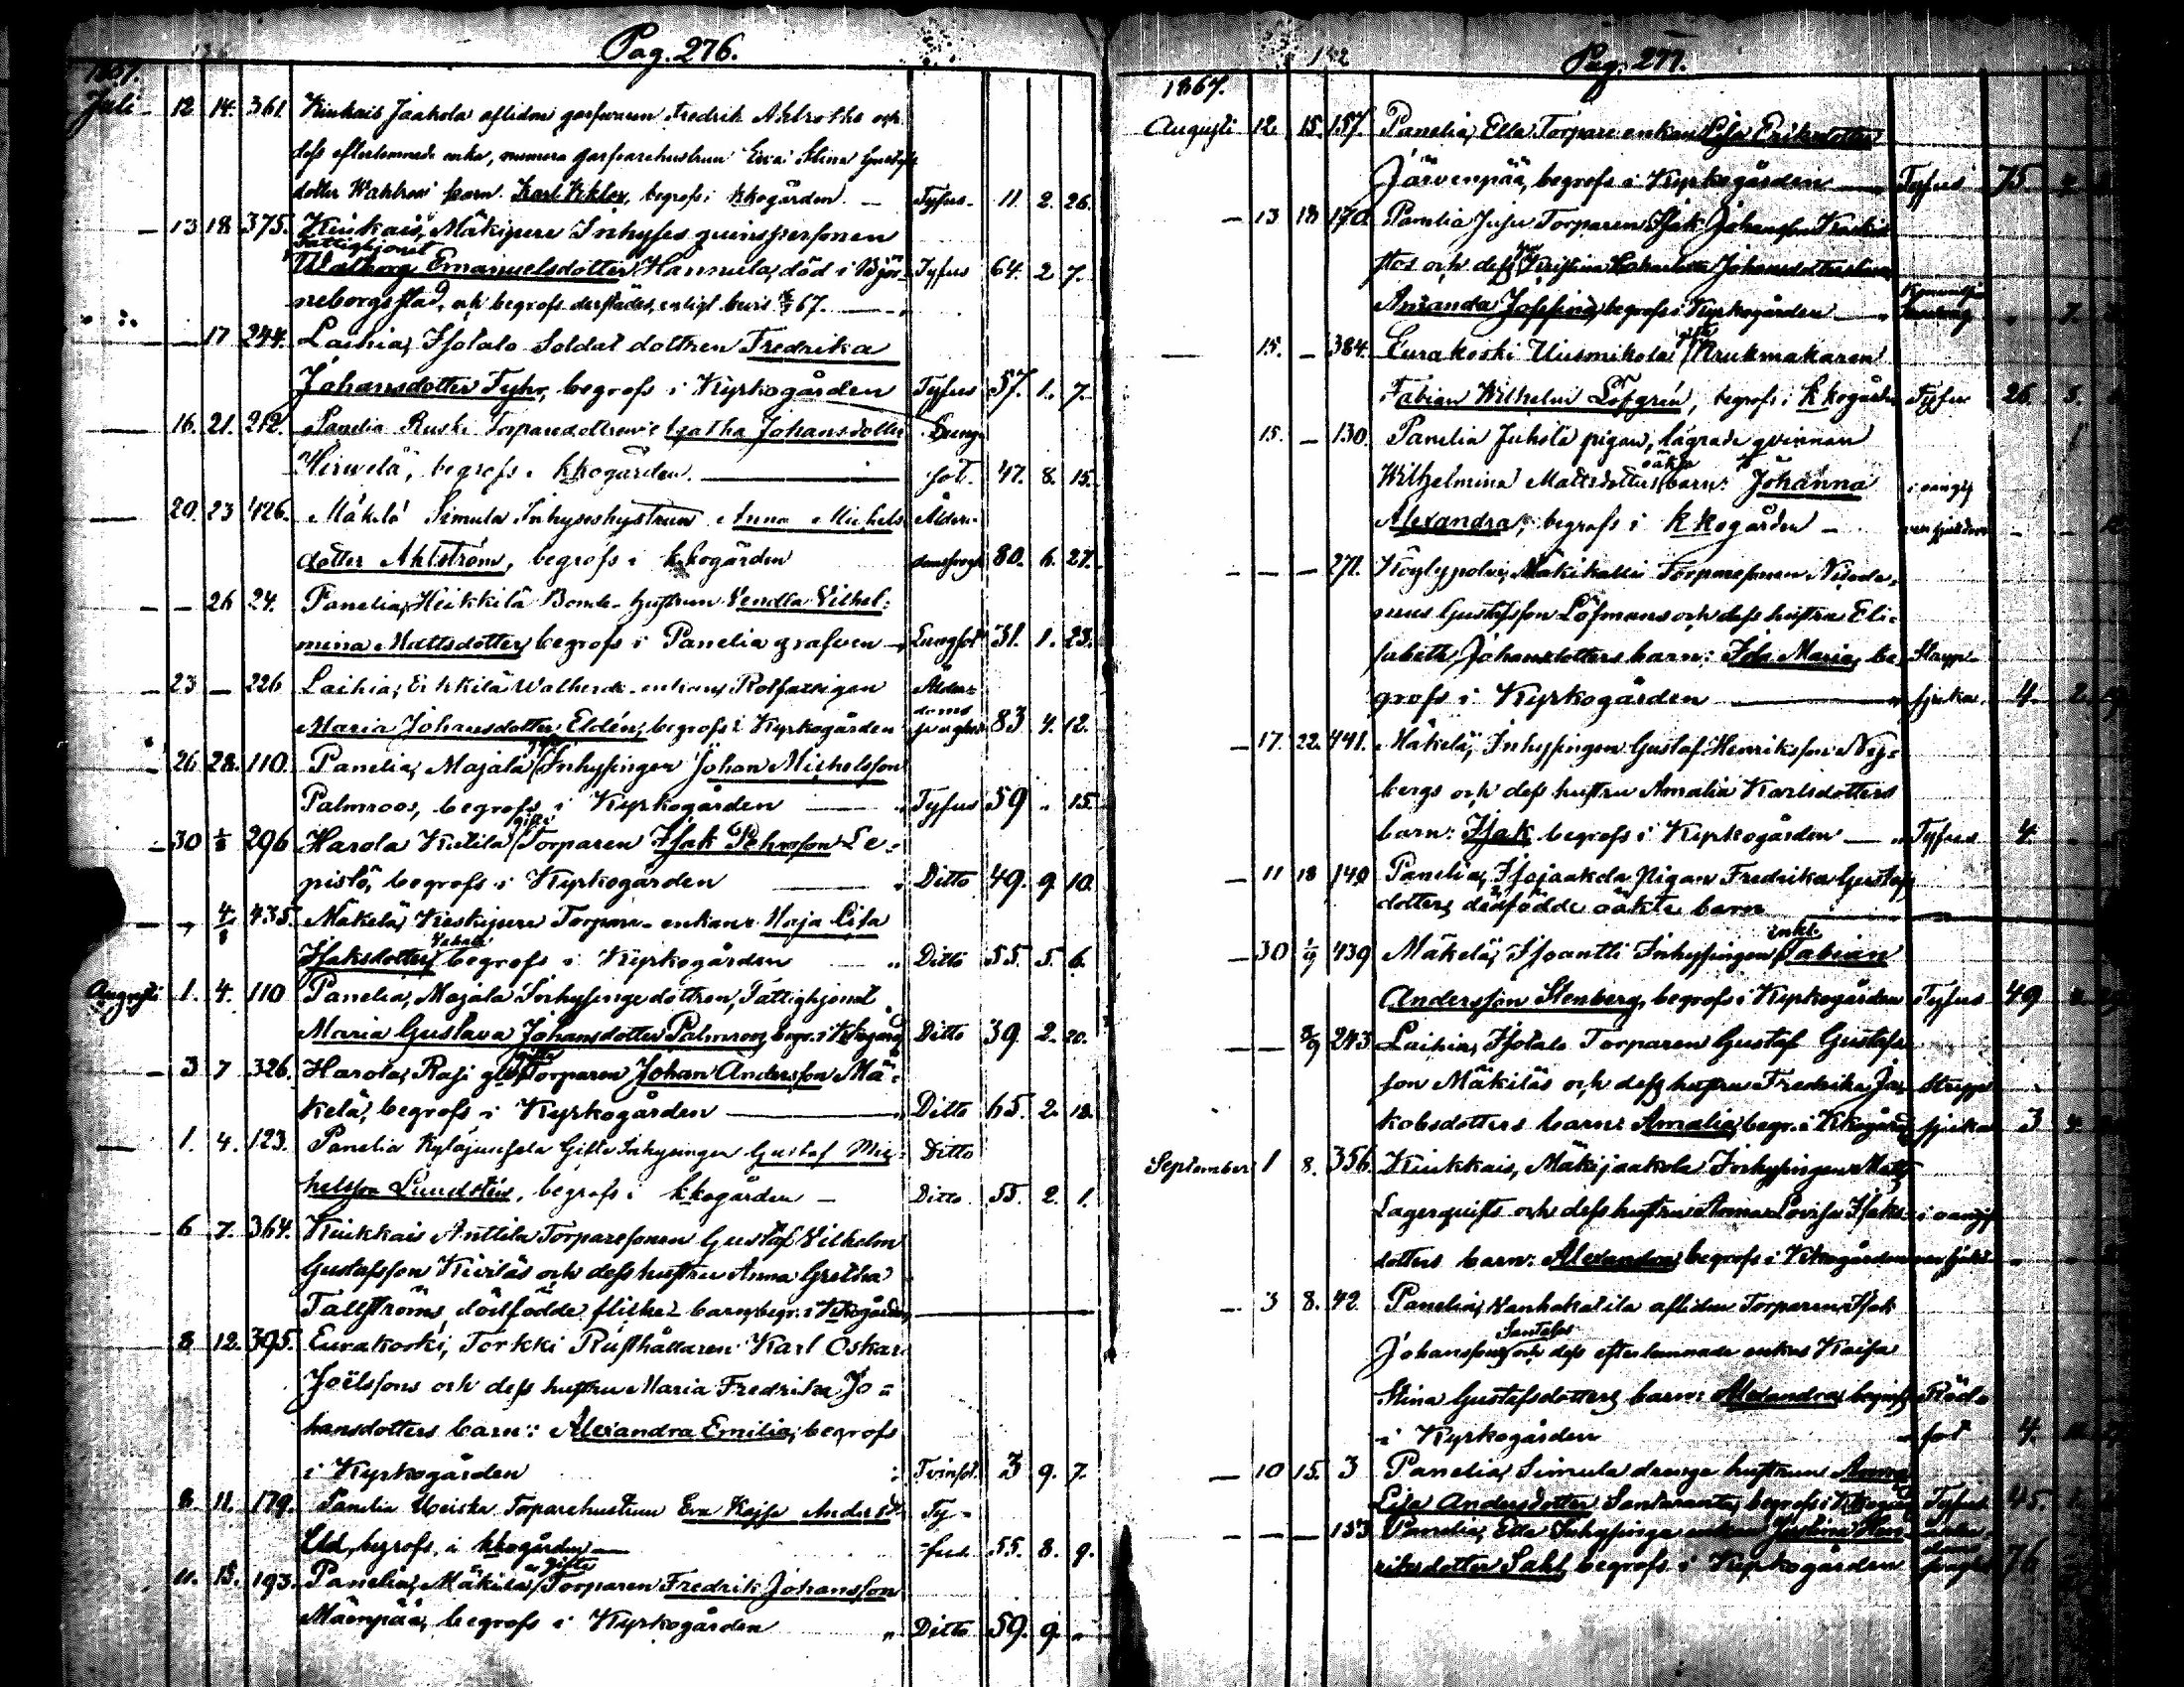 Pag. 276.
1867.
Juli 12 14. 361. Kiukais Jaakola aflidne garfvaren Fredrik Ahlroths och
dess efterlemnade enka, numera garfvarehustrun Eva Stina Gustafs
dotter Wahlroos' barn. Karl Viktor, begrofs i kkogården. — Tyfus. 11. 2. 26.
— 13 18 375. Kiukais, Mäkipere Inhyses qvinspersonen
Fattighjonet
Walborg Emanuelsdotter Hannula, död i Björ- Tyfus 64. 2 7.
neborgs stad, och begrofs derstädes, enligt bevis 67.
— 17 244. Laihia, Isotalo Soldat dottren Fredrika
Johansdotter Fyhr, begrofs i Kyrkogården Tyfus 57. 1. 7.
— 16. 21. 212. Panelia Ruski Torparedottren Agatha Johansdotter Lung-
Hirvelä, begrofs i kkogården. sot. 47. 8. 15.
— 20. 23 426. Mäkelä Simula Inhyseshustrun Anna Michels Ålder-
dotter Ahlström, begrofs i kkogården 80. 6. 27.
— — 26 24. Panelia, Heikkilä Bonde-hustrun Vendla Vilhel-
mina Mattsdotter, begrofs i Panelia grafven — Lungsot 31. 1. 23.
— 23 — 226 Laihia, Erkkilä enkan, Rotfattigen Ålder-
doms
Maria Johansdotter Eldén, begrofs i Kyrkogården 83 4. 12.
— 26. 28. 110. Panelia, Majala Inhysingen Johan Michelsson
Palmroos, begrofs i Kyrkogården — Tyfus 59 „ 15.
gifte
— 30 296 Harola Kutila Torparen Isak Johnsson Le-
pistö, begrofs i Kyrkogården — Ditto 49. 9. 10.
— „ 4/8 435. Mäkelä, Keskipere Torpare-enkan Maja Lisa
Isaksdotter, begrofs i Kyrkogården „ Ditto 55. 5. 6.
Augusti 1. 4. 110 Panelia, Majala Inhysinge dottren, Fattighjonet
Maria Gustava Johansdotter Palmroos, begr. i Kkogården Ditto 39. 2. 20.
gifte
— 3 7 326. Harola, Rasi Torparen Johan Andersson Mä-
kelä, begrofs i Kyrkogården — Ditto 65. 2. 18.
— 1. 4. 123. Panelia Kyläjunsola Gifte Inhysingen Gustaf Mic- Ditto
helsson Lundstén, begrofs i kkogården — Ditto 55. 2. 1.
— 6 7. 364. Kiukkais Anttila Torparesonen Gustaf Vilhelm
Gustafsson Kiviläs och dess hustru Anna Gretha
Tallströms, dödfödde flicke-barn, begr. i Kkogården
8 12. 395. Eurakoski, Torkki Rusthållaren Karl Oskar
Joëlsons och dess hustru Maria Fredrika Jo-
hansdotters barn: Alexandra Emilia, begrofs
i Kyrkogården Tvinsot. 3 9. 7.
8. 11. 179. Panelia Torparehustrun Eva Kajsa Andersdr. Ty-
begrofs i kkogården — fus. 55. 8. 9.
gifte
11. 13. 193. Panelia, Mäkilä Torparen Fredrik Johansson
Mäenpää, begrofs i Kyrkogården „ Ditto 59. 9. „
Pag. 277.
1867.
Augusti 12 15. 157. Panelia, Ella Torpare enkan Lisa Eriksdotter
Järvenpää, begrofs i Kyrkogården — Tyfus 75
— 13 18 170. Panelia Torparen Isak Johansson
och dess Johansdotters barn
Amanda Josefina, begrofs i Kyrkogården — 7.
— 15. — 384. Eurakoski Uusnikola Krukmakaren
Fabian Wilhelm Löfgrén, begrofs i kkogården Tyfus 26. 5.
15. — 130. Panelia Juhola pigan, lägrade qvinnan
oäkta
Wilhelmina Mattsdotters barn: Johanna
Alexandra, begrofs i kkogården —
— — — 271. Köylypolvi, Mäkikallii Torparesonen Nicode-
mus Gustafsson Löfmans och dess hustru Eli-
sabeth Johansdotters barn: Ida Maria, be-
grofs i Kyrkogården — sjuka. 4. 2.
— 17. 22. 441. Mäkelä, Inhysingen Gustaf Henriksson Ny-
bergs och dess hustru Amalia Karlsdotters
barn: Isak begrofs i Kyrkogården — Tyfus 4.
— 11 18 140 Panelia, Isojaakola Pigan Fredrika Gustafs
dotters dödfödde oäkta barn
enkl.
— 30 1/9 439 Mäkelä, Isoantti Inhysingen Fabian
Andersson Stenberg, begrofs i Kyrkogården Tyfus 49
— — 243 Laihia, Isotalo Torparen Gustaf Gustafs-
son Mäkiläs och dess hustru Fredrika Ja-
kobsdotters barn: Amalia, begr. i Kkogården sjuka 3
September 1 8. 356. Kiukkais, Mäkijaakola Inhysingen Matts
Lagerquists och dess hustru Anna Lovisa Isaks-
dotters barn: Alexandra, begrofs i Kkogården
— 3 8. 42. Panelia, Vanhakatila aflidne Torparen Isak
Johanssons och dess efterlemnade enkas Kaisa
Stina Gustafsdotters barn: Alexandra, begrofs Röd-
i Kyrkogården sot 4.
— 10 15. 3 Panelia, Simula drenge hustrun Anna
Lisa Andersdotter Santaranta, begrofs i Kkogården Tyfus 45.
— — — 153 Panelia, Ella Inhysinge enkan Justina Hen-
riksdotter Sahl begrofs i Kyrkogården 76